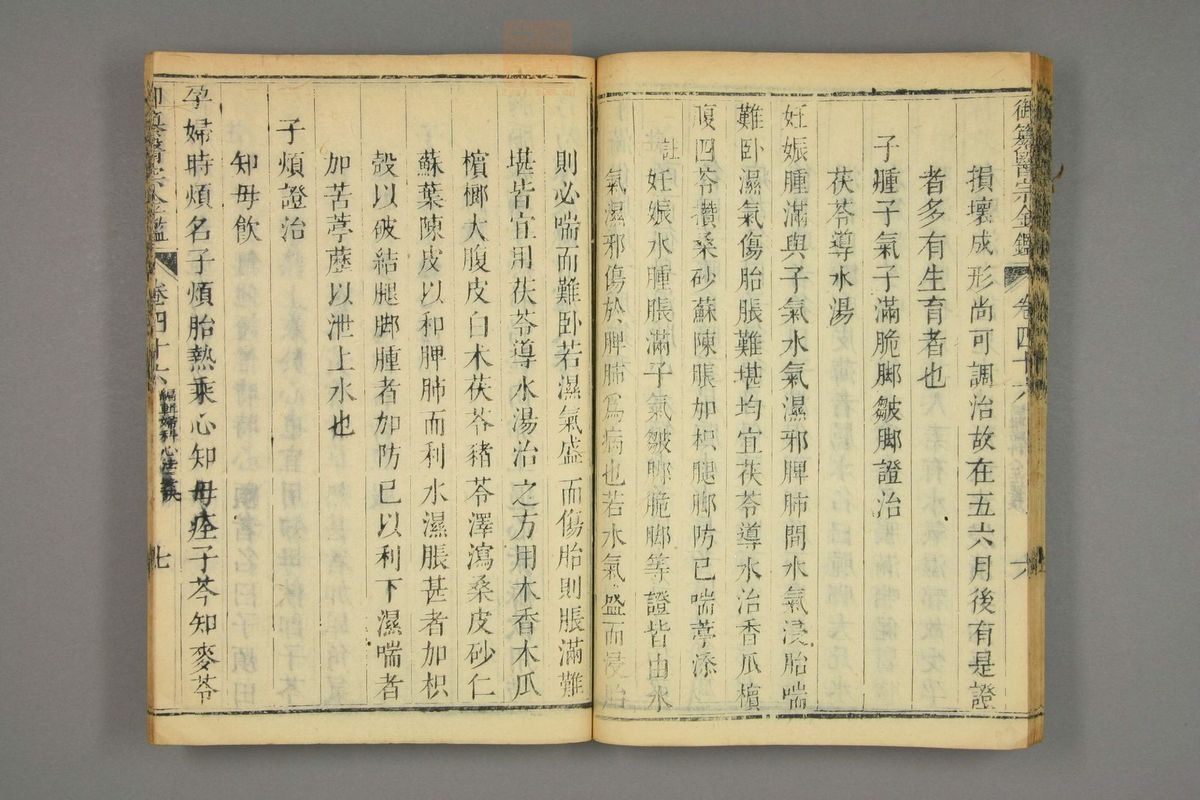 御纂醫宗金鑑 卷四十六 六
損壞成形尚可調治故在五六月後有是證
者多有生育者也
子腫子氣子滿脆脚皺脚證治
茯苓導水湯
妊娠腫滿與子氣水氣濕邪脾肺間水氣浸胎喘
難卧濕氣傷胎脹難堪均宜茯苓導水治香瓜檳
腹四苓攢桑砂蘇陳脹加枳腿脚防己喘葶添
註 妊娠水腫脹滿子氣皺脚脆脚等證皆由水
氣濕邪傷於脾肺爲病也若水氣盛而浸胎
則必喘而難卧若濕氣盛而傷胎則脹滿難
堪皆宜用茯苓導水湯治之方用木香木瓜
檳榔大腹皮白术茯苓豬苓澤瀉桑皮砂仁
蘇葉陳皮以和脾肺而利水濕脹甚者加枳
殼以破結腿脚腫者加防己以利下濕喘者
加苦葶藶以泄上水也
子煩證治
知母飲
孕婦時煩名子煩胎熱乘心知母痊子芩知麥苓
御纂醫宗金鑑 卷四十六 編輯婦科心法要訣 七